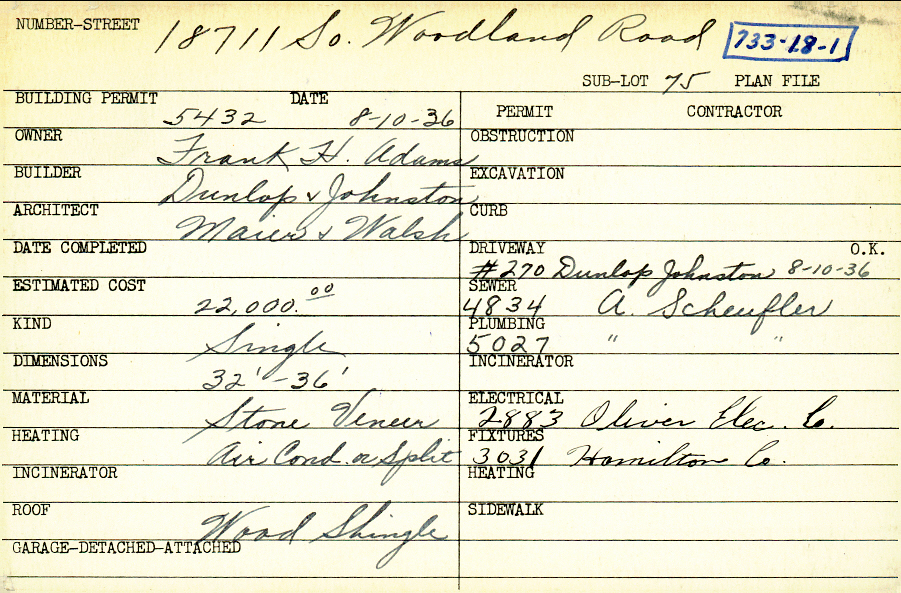 NUMBER-STREET 18711 So. Woodland Road 733-18-1
SUB-LOT 75 PLAN FILE
BUILDING PERMIT 5432 DATE 8-10-36
PERMIT CONTRACTOR
OWNER Frank H. Adams
OBSTRUCTION
BUILDER Dunlop & Johnston
EXCAVATION
ARCHITECT Maier & Walsh
CURB
DATE COMPLETED
DRIVEWAY #270 Dunlop Johnston 8-10-36 O.K.
ESTIMATED COST 22,000.00
SEWER 4834 A. Scheufler
KIND Single
PLUMBING 5027 " "
DIMENSIONS 32' - 36'
INCINERATOR
MATERIAL Stone Veneer
ELECTRICAL 2883 Oliver Elec. Co.
HEATING Air Cond. or Split
FIXTURES 3031 Hamilton Co.
INCINERATOR
HEATING
ROOF Wood Shingle
SIDEWALK
GARAGE-DETACHED-ATTACHED